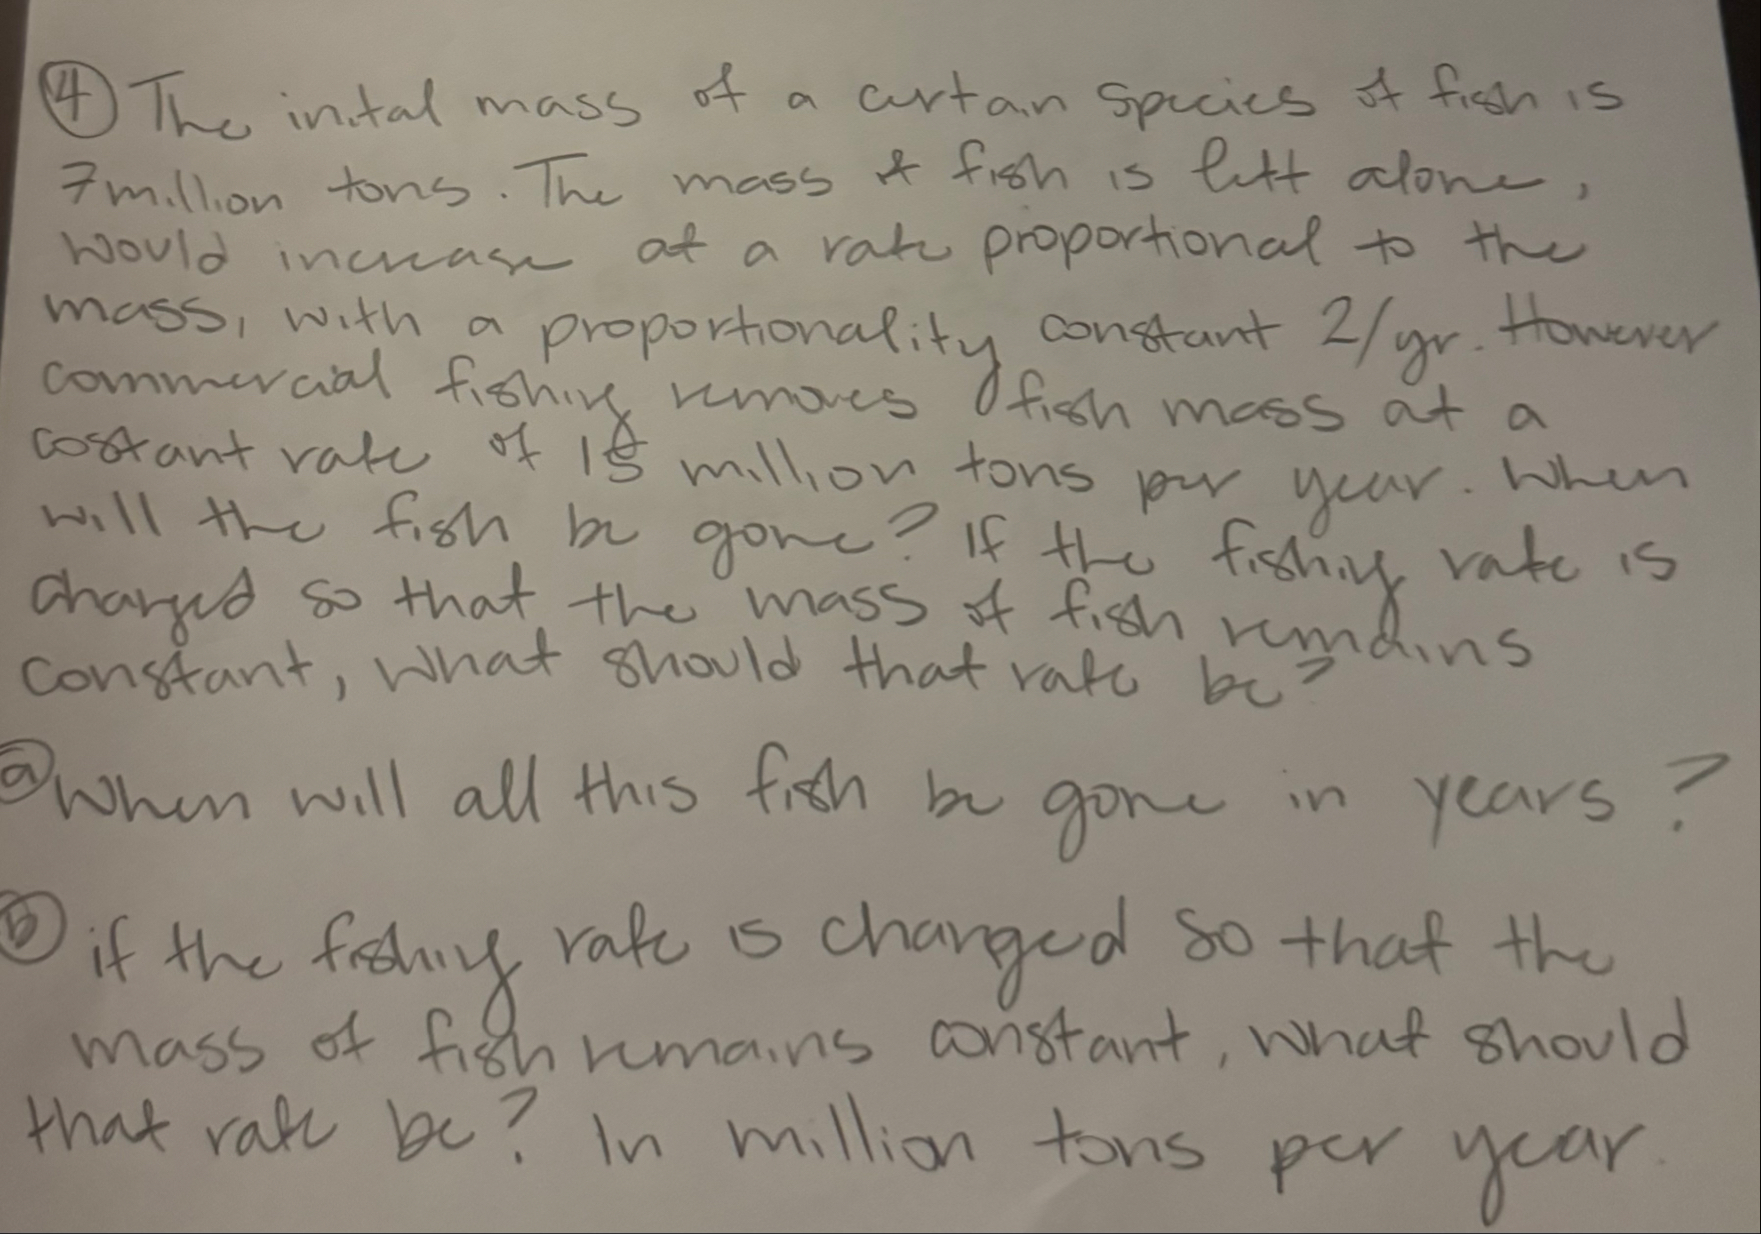 ④ The inital mass of a certain species of fish is
7 million tons. The mass of fish is left alone,
would increase at a rate proportional to the
mass, with a proportionality constant 2/yr. However
commercial fishing removes fish mass at a
costant rate of 15 million tons per year. When
will the fish be gone? If the fishing rate is
changed so that the mass of fish remains
constant, what should that rate be?
ⓐ When will all this fish be gone in years?
ⓑ if the fishing rate is changed so that the
mass of fish remains constant, what should
that rate be? In million tons per year